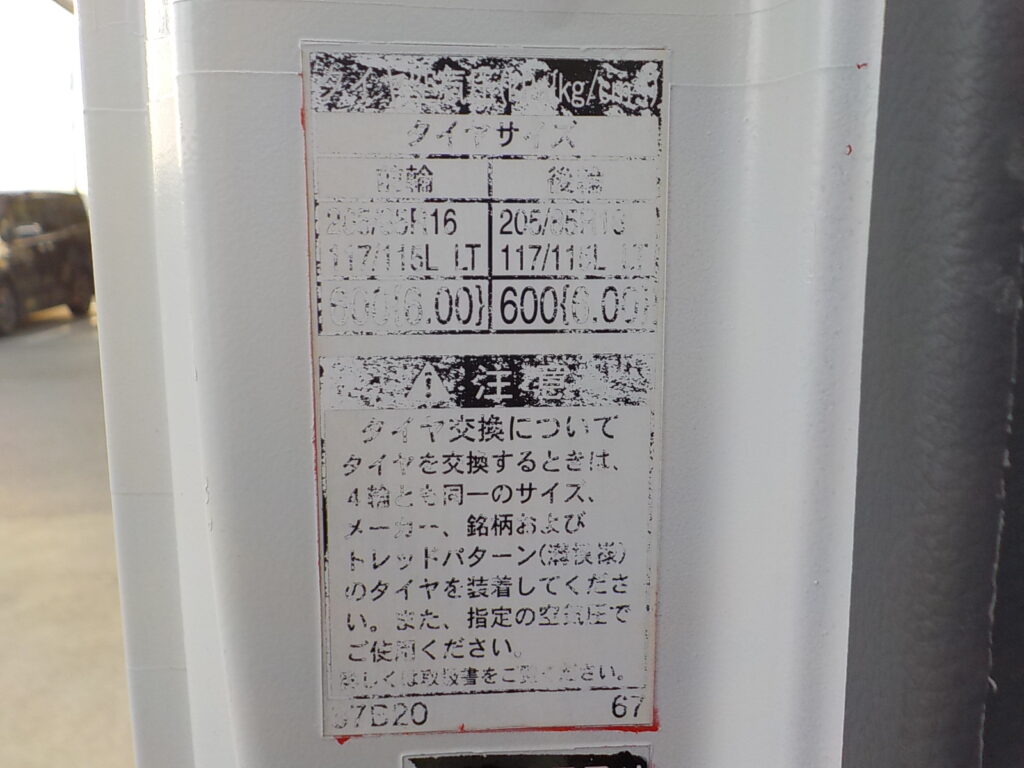 タイヤ空気圧(kPa{kg/cm²})
タイヤサイズ
前輪 後輪
205/85R16 205/85R16
117/115L LT 117/115L LT
600{6.00} 600{6.00}
⚠ 注意
タイヤ交換について
タイヤを交換するときは、
4輪とも同一のサイズ、
メーカー、銘柄および
トレッドパターン(溝模様)
のタイヤを装着してくださ
い。また、指定の空気圧で
ご使用ください。
詳しくは取扱書をご覧ください。
37B20 67